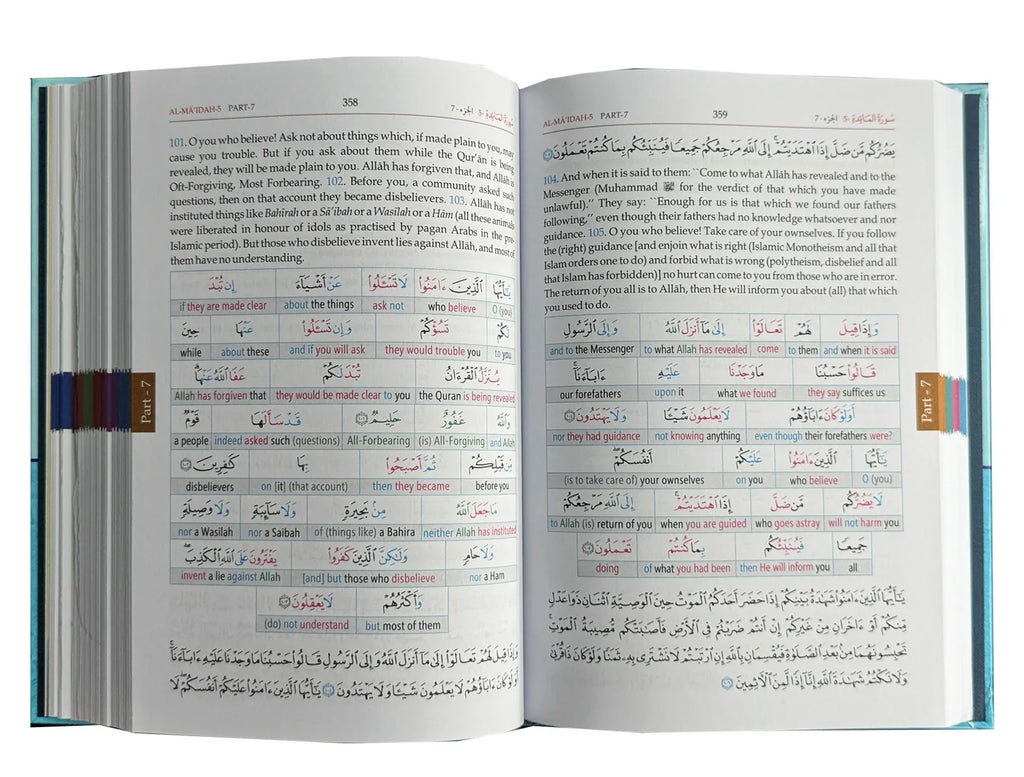 AL-MĀ'IDAH-5 PART-7 358 سورة المائدة -5 الجزء -7
101. O you who believe! Ask not about things which, if made plain to you, may
cause you trouble. But if you ask about them while the Qur'ān is being
revealed, they will be made plain to you. Allāh has forgiven that, and Allāh is
Oft-Forgiving, Most Forbearing. 102. Before you, a community asked such
questions, then on that account they became disbelievers. 103. Allāh has not
instituted things like Bahīrah or a Sā'ibah or a Wasīlah or a Hām (all these animals
were liberated in honour of idols as practised by pagan Arabs in the pre-
Islamic period). But those who disbelieve invent lies against Allāh, and most of
them have no understanding.
يَٰٓأَيُّهَا الَّذِينَ ءَامَنُواْ لَا تَسْـَٔلُواْ عَنْ أَشْيَآءَ إِن تُبْدَ
if they are made clear about the things ask not who believe O (you)
لَكُمْ تَسُؤْكُمْ وَإِن تَسْـَٔلُواْ عَنْهَا حِينَ
while about these and if you will ask they would trouble you to you
يُنَزَّلُ الْقُرْءَانُ تُبْدَ لَكُمْ عَفَا اللَّهُ عَنْهَا ۗ
Allah has forgiven that they would be made clear to you the Quran is being revealed
وَاللَّهُ غَفُورٌ حَلِيمٌ ١٠١ قَدْ سَأَلَهَا قَوْمٌ
a people indeed asked such (questions) All-Forbearing (is) All-Forgiving and Allah
مِّن قَبْلِكُمْ ثُمَّ أَصْبَحُواْ بِهَا كَٰفِرِينَ ١٠٢
disbelievers on [it] (that account) then they became before you
مَا جَعَلَ اللَّهُ مِنۢ بَحِيرَةٍ وَلَا سَآئِبَةٍ وَلَا وَصِيلَةٍ
nor a Wasilah nor a Saibah of (things like) a Bahira neither Allah has instituted
وَلَا حَامٍ وَلَٰكِنَّ الَّذِينَ كَفَرُواْ يَفْتَرُونَ عَلَى اللَّهِ الْكَذِبَ ۖ
invent a lie against Allah [and] but those who disbelieve nor a Ham
وَأَكْثَرُهُمْ لَا يَعْقِلُونَ ١٠٣
(do) not understand but most of them
وَإِذَا قِيلَ لَهُمْ تَعَالَوْاْ إِلَىٰ مَآ أَنزَلَ اللَّهُ وَإِلَى الرَّسُولِ قَالُواْ حَسْبُنَا مَا وَجَدْنَا عَلَيْهِ ءَابَآءَنَآ ۚ
أَوَلَوْ كَانَ ءَابَآؤُهُمْ لَا يَعْلَمُونَ شَيْـًٔا وَلَا يَهْتَدُونَ ١٠٤ يَٰٓأَيُّهَا الَّذِينَ ءَامَنُواْ عَلَيْكُمْ أَنفُسَكُمْ ۖ لَا
Part - 7
AL-MĀ'IDAH-5 PART-7 359 سورة المائدة -5 الجزء -7
يَضُرُّكُم مَّن ضَلَّ إِذَا اهْتَدَيْتُمْ ۚ إِلَى اللَّهِ مَرْجِعُكُمْ جَمِيعًا فَيُنَبِّئُكُم بِمَا كُنتُمْ تَعْمَلُونَ ١٠٥
104. And when it is said to them: ``Come to what Allāh has revealed and to the
Messenger (Muhammad ﷺ for the verdict of that which you have made
unlawful).'' They say: ``Enough for us is that which we found our fathers
following,'' even though their fathers had no knowledge whatsoever and nor
guidance. 105. O you who believe! Take care of your ownselves. If you follow
the (right) guidance [and enjoin what is right (Islamic Monotheism and all that
Islam orders one to do) and forbid what is wrong (polytheism, disbelief and all
that Islam has forbidden)] no hurt can come to you from those who are in error.
The return of you all is to Allāh, then He will inform you about (all) that which
you used to do.
وَإِذَا قِيلَ لَهُمْ تَعَالَوْاْ إِلَىٰ مَآ أَنزَلَ اللَّهُ وَإِلَى الرَّسُولِ
and to the Messenger to what Allah has revealed come to them and when it is said
قَالُواْ حَسْبُنَا مَا وَجَدْنَا عَلَيْهِ ءَابَآءَنَآ ۚ
our forefathers upon it what we found they say suffices us
أَوَلَوْ كَانَ ءَابَآؤُهُمْ لَا يَعْلَمُونَ شَيْـًٔا وَلَا يَهْتَدُونَ ١٠٤
nor they had guidance not knowing anything even though their forefathers were?
يَٰٓأَيُّهَا الَّذِينَ ءَامَنُواْ عَلَيْكُمْ أَنفُسَكُمْ ۖ
(is to take care of) your ownselves on you who believe O (you)
لَا يَضُرُّكُم مَّن ضَلَّ إِذَا اهْتَدَيْتُمْ ۚ إِلَى اللَّهِ مَرْجِعُكُمْ
to Allah (is) return of you when you are guided who goes astray will not harm you
جَمِيعًا فَيُنَبِّئُكُم بِمَا كُنتُمْ تَعْمَلُونَ ١٠٥
doing of what you had been then He will inform you all
يَٰٓأَيُّهَا الَّذِينَ ءَامَنُواْ شَهَٰدَةُ بَيْنِكُمْ إِذَا حَضَرَ أَحَدَكُمُ الْمَوْتُ حِينَ الْوَصِيَّةِ اثْنَانِ ذَوَا عَدْلٍ
مِّنكُمْ أَوْ ءَاخَرَانِ مِنْ غَيْرِكُمْ إِنْ أَنتُمْ ضَرَبْتُمْ فِي الْأَرْضِ فَأَصَٰبَتْكُم مُّصِيبَةُ الْمَوْتِ ۚ
تَحْبِسُونَهُمَا مِنۢ بَعْدِ الصَّلَوٰةِ فَيُقْسِمَانِ بِاللَّهِ إِنِ ارْتَبْتُمْ لَا نَشْتَرِى بِهِۦ ثَمَنًا وَلَوْ كَانَ ذَا قُرْبَىٰ ۙ
وَلَا نَكْتُمُ شَهَٰدَةَ اللَّهِ إِنَّآ إِذًا لَّمِنَ الْءَاثِمِينَ ١٠٦
Part - 7